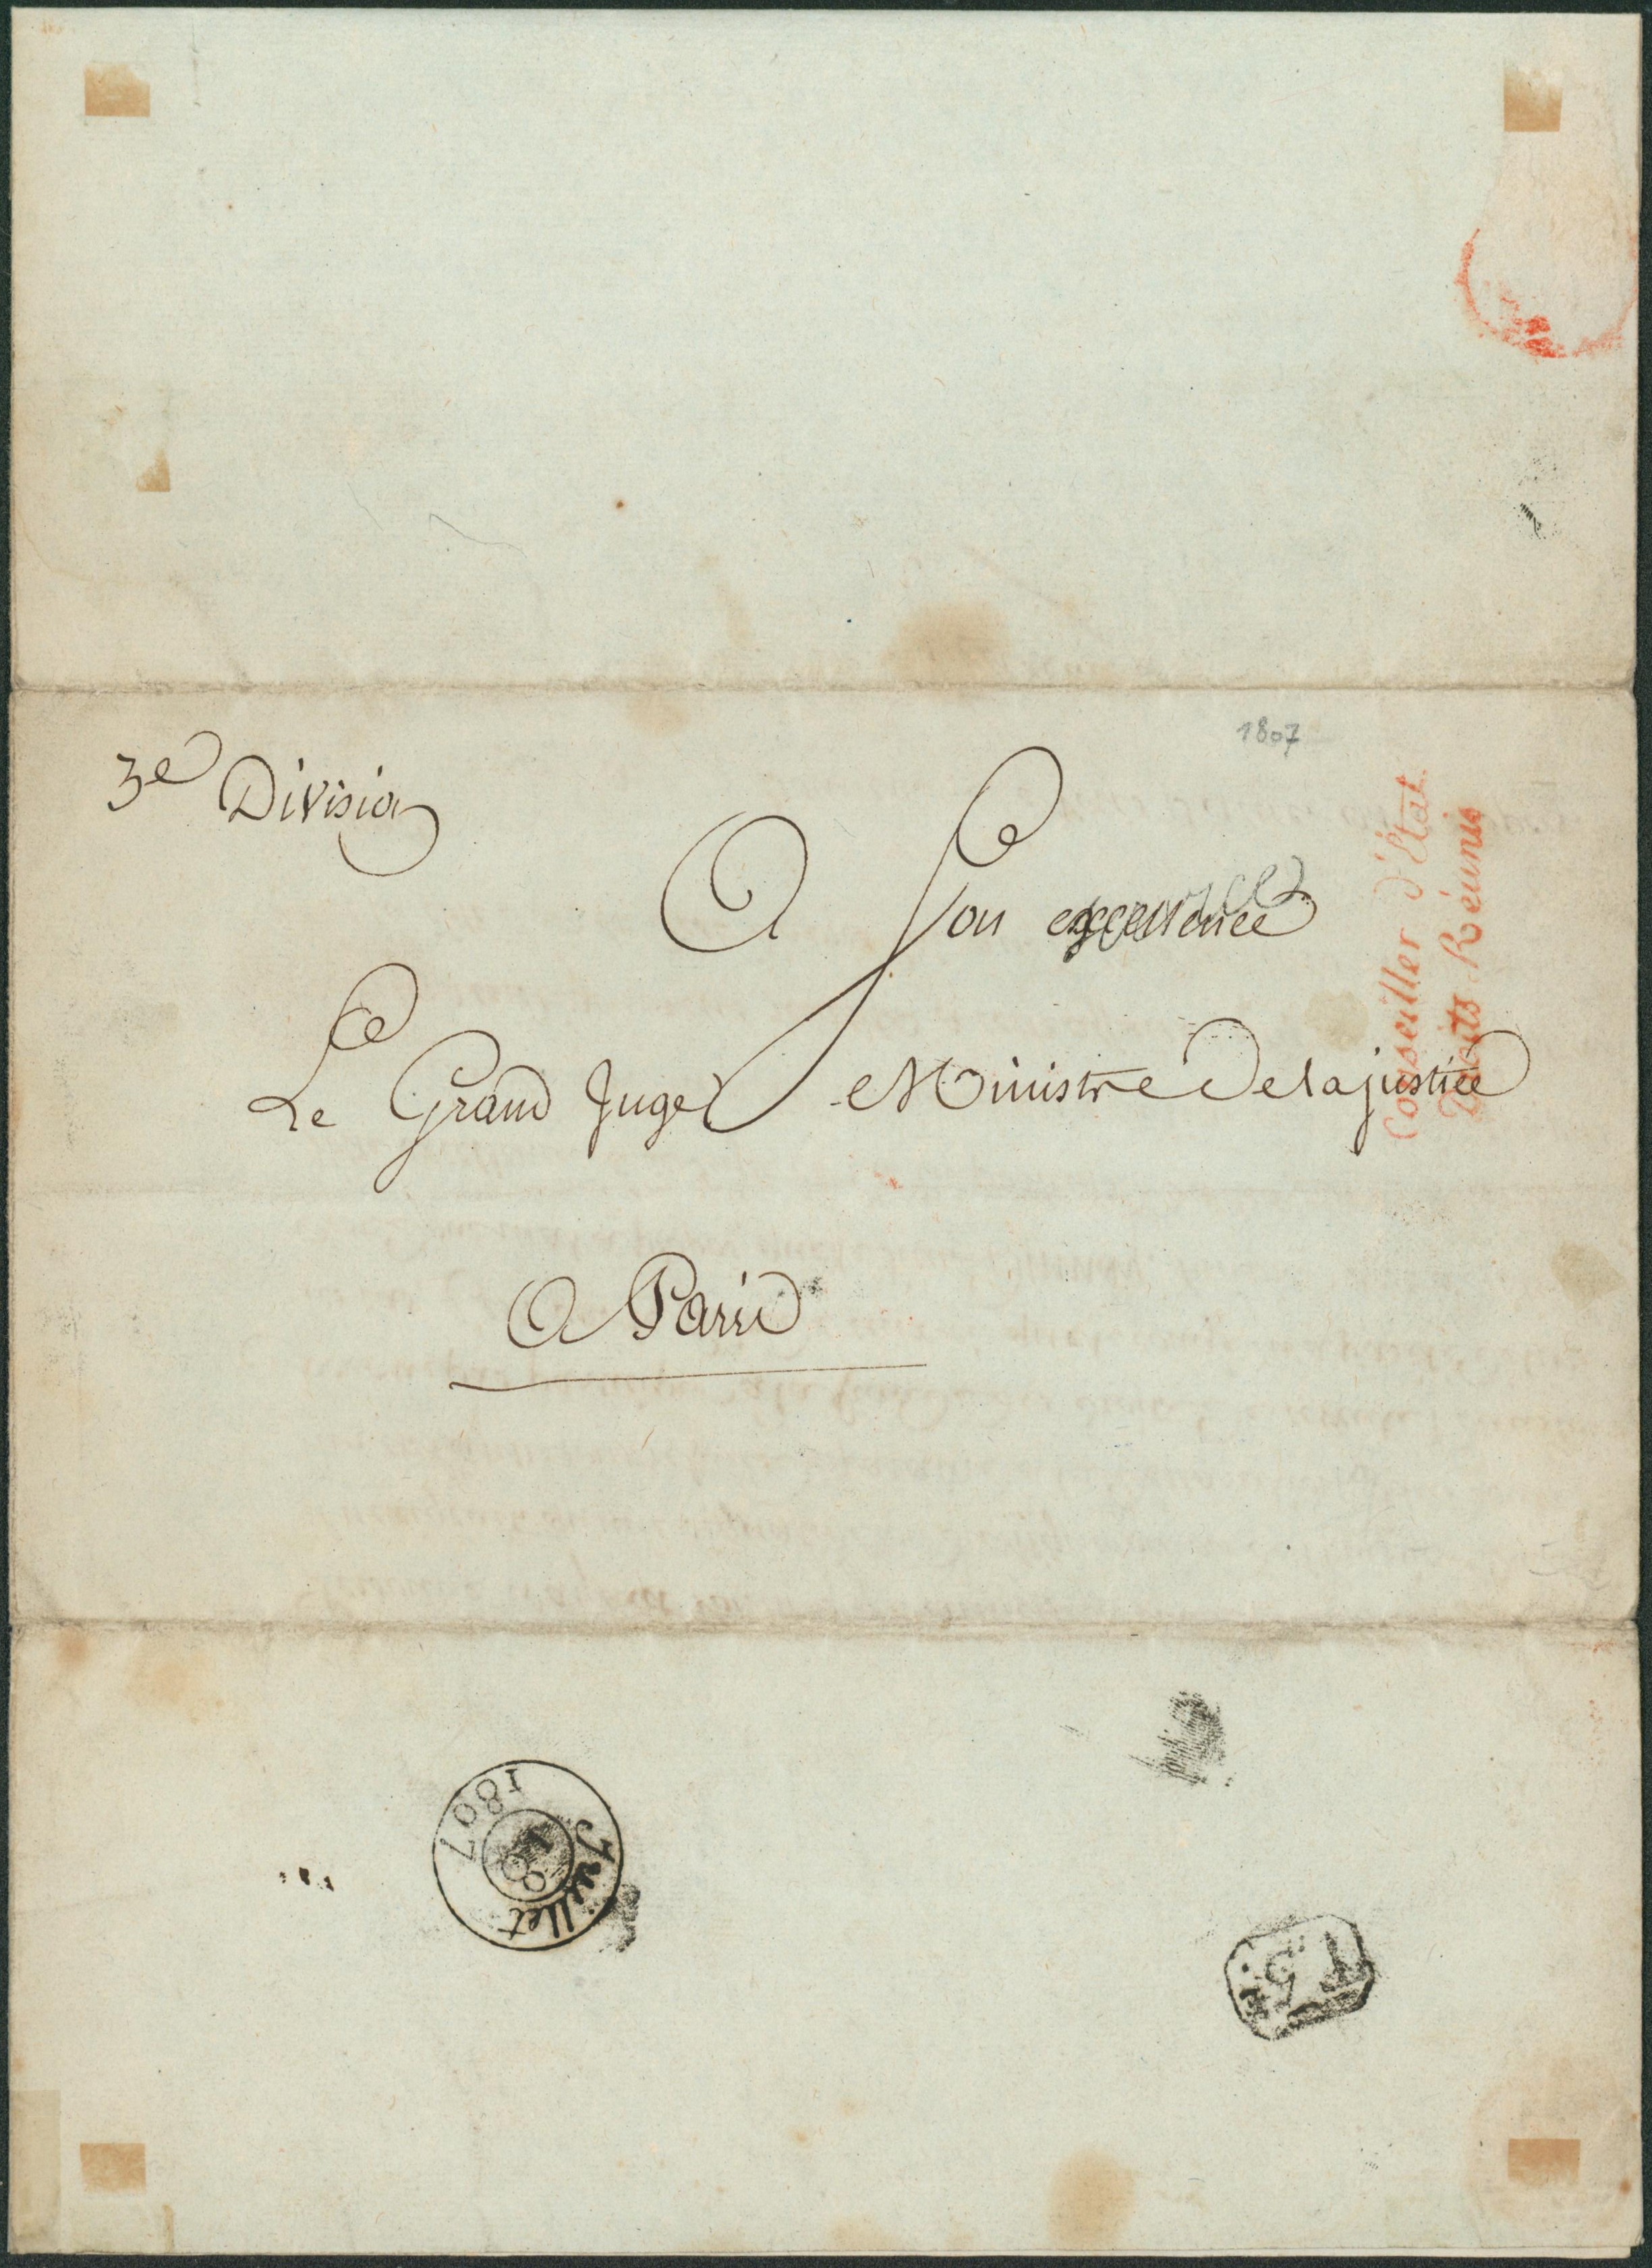 1807
3e Division
A Son excellence
Le Grand Juge Ministre De la justice
A Paris
Conseiller d'Etat
Droits Réunis
Juillet
18
1807